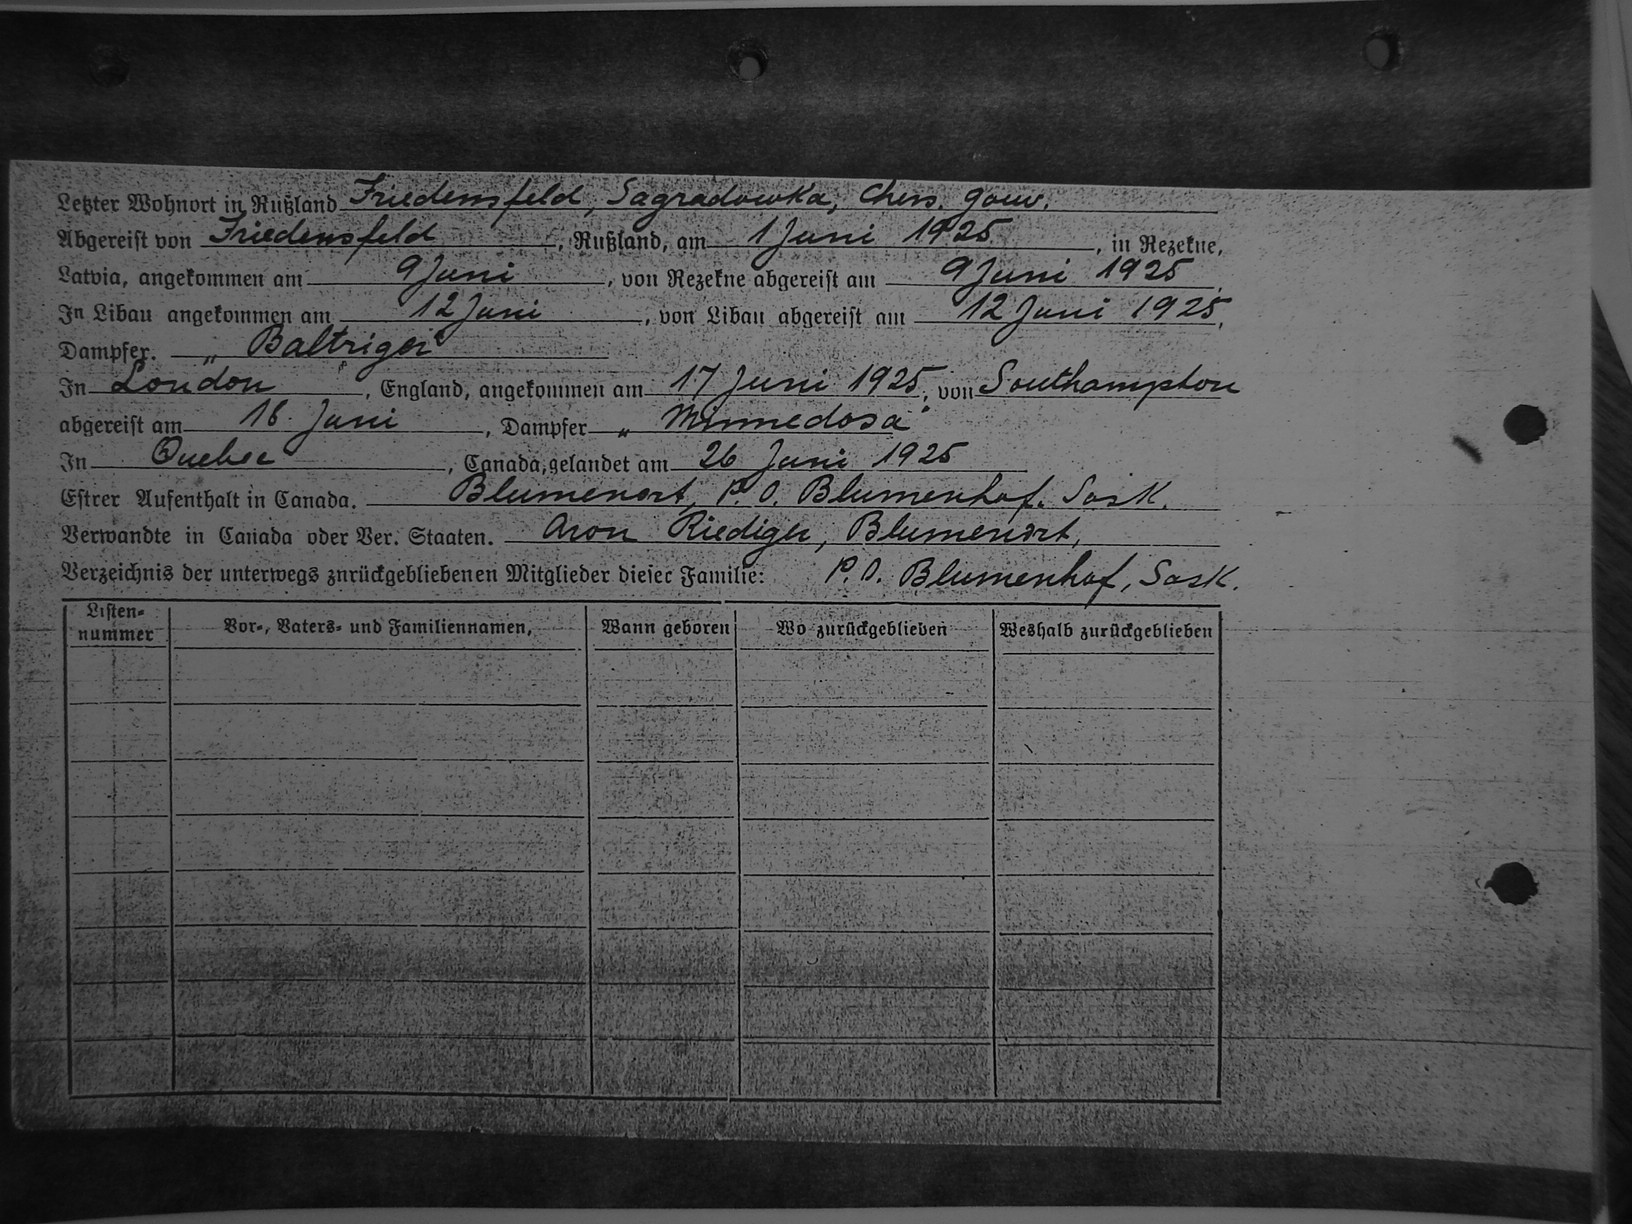 Letzter Wohnort in Rußland Friedensfeld, Sagradowka, Chers. Gouv.
Abgereist von Friedensfeld, Rußland, am 1 Juni 1925, in Rezekne,
Latvia, angekommen am 9 Juni, von Rezekne abgereist am 9 Juni 1925.
In Libau angekommen am 12 Juni, von Libau abgereist am 12 Juni 1925.
Dampfer. „Baltriger“
In London, England, angekommen am 17 Juni 1925, von Southampton
abgereist am 18. Juni, Dampfer „Minnedosa“
In Quebec, Canada, gelandet am 26 Juni 1925
Estrer Aufenthalt in Canada. Blumenort, P. O. Blumenhof. Sask.
Verwandte in Canada oder Ver. Staaten. Aron Riediger, Blumenort,
Verzeichnis der unterwegs znrückgebliebenen Mitglieder diesec Familie: P. O. Blumenhof, Sask.
Listen-
nummer Vor-, Vaters- und Familiennamen, Wann geboren Wo zurückgeblieben Weshalb zurückgeblieben